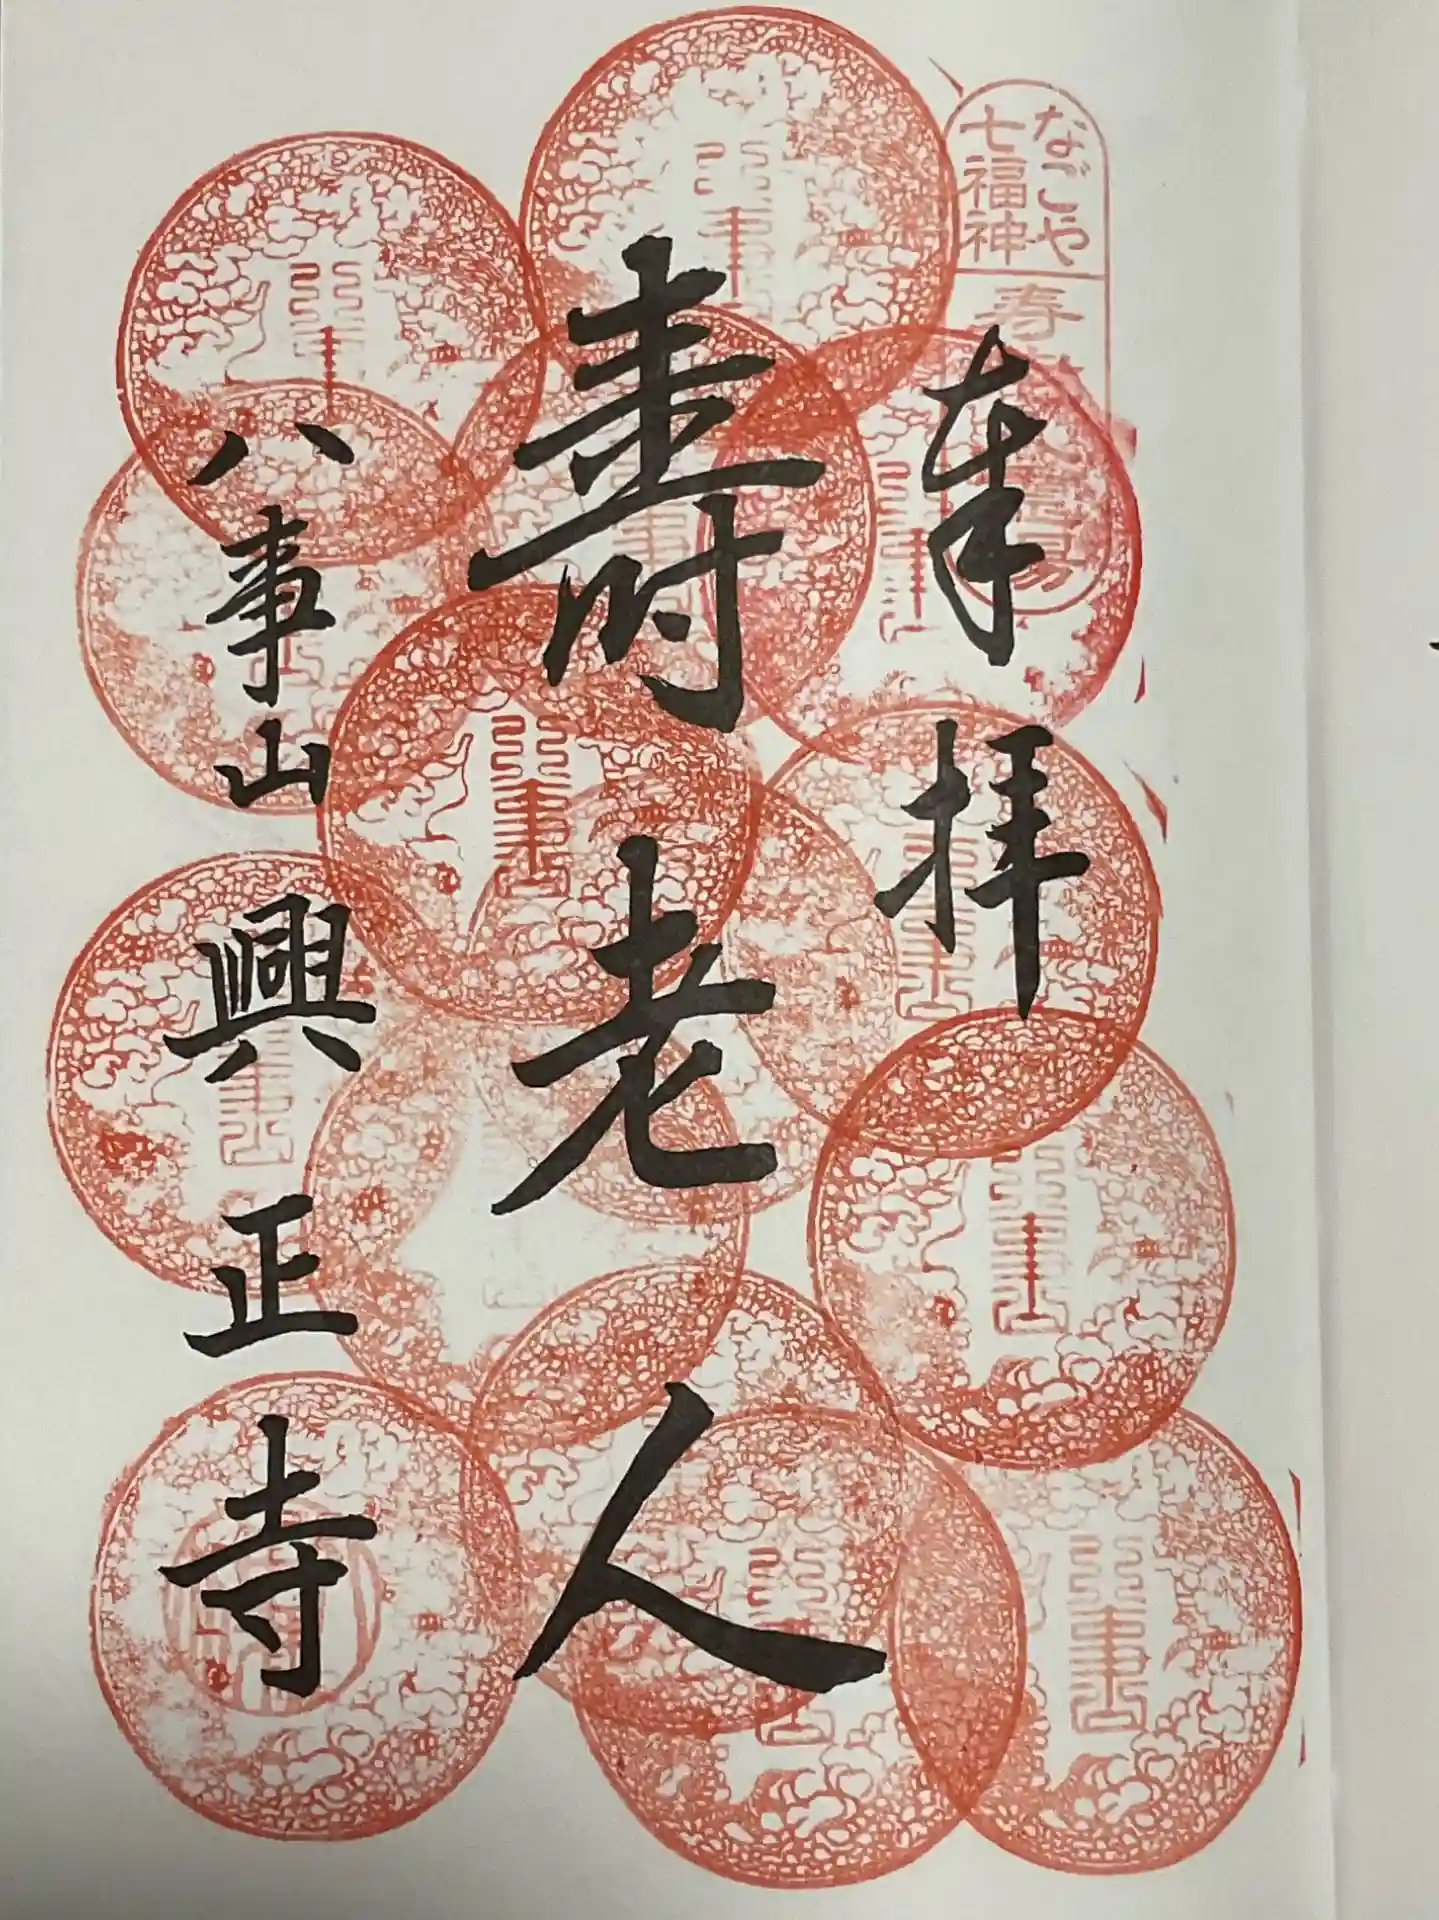 なごや
七福神
寿
奉拝
寿老人
八事山興正寺